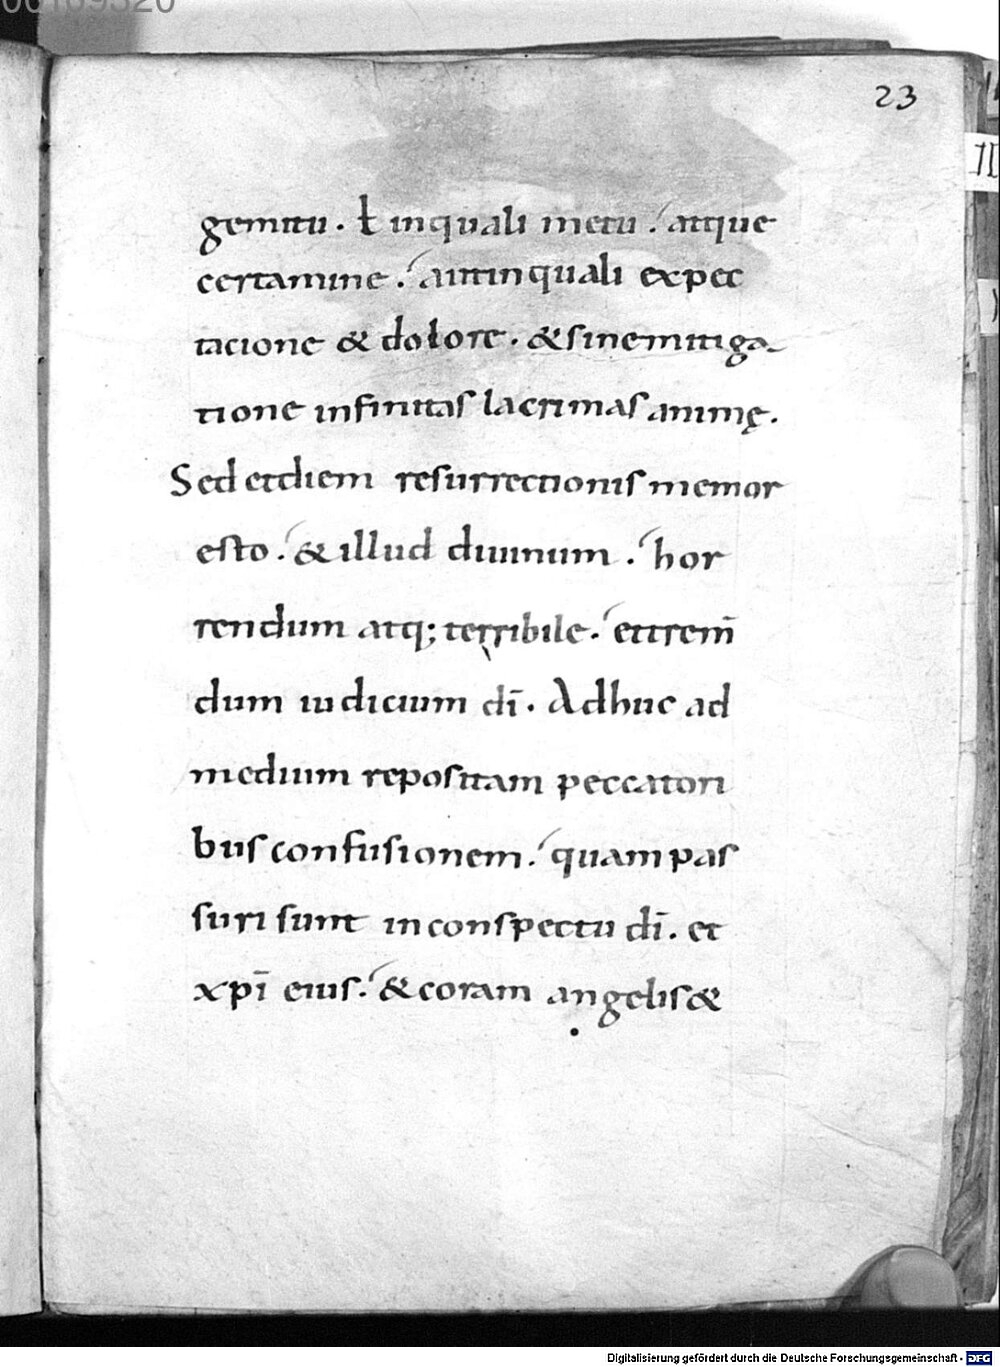 23
gemitu. ł in quali metu. atque
certamine. aut in quali expec
tacione & dolore. & sine mitiga
tione infinitas lacrimas animę.
Sed et diem resurrectionis memor
esto. & illud diuinum. hor
rendum atq; terribile. et trem̄
dum iudicium dī. Adhuc ad
medium repositam peccatori
bus confusionem. quam pas
suri sunt in conspectu dī. et
xpī eius. & coram angelis &
Digitalisierung gefördert durch die Deutsche Forschungsgemeinschaft - DFG